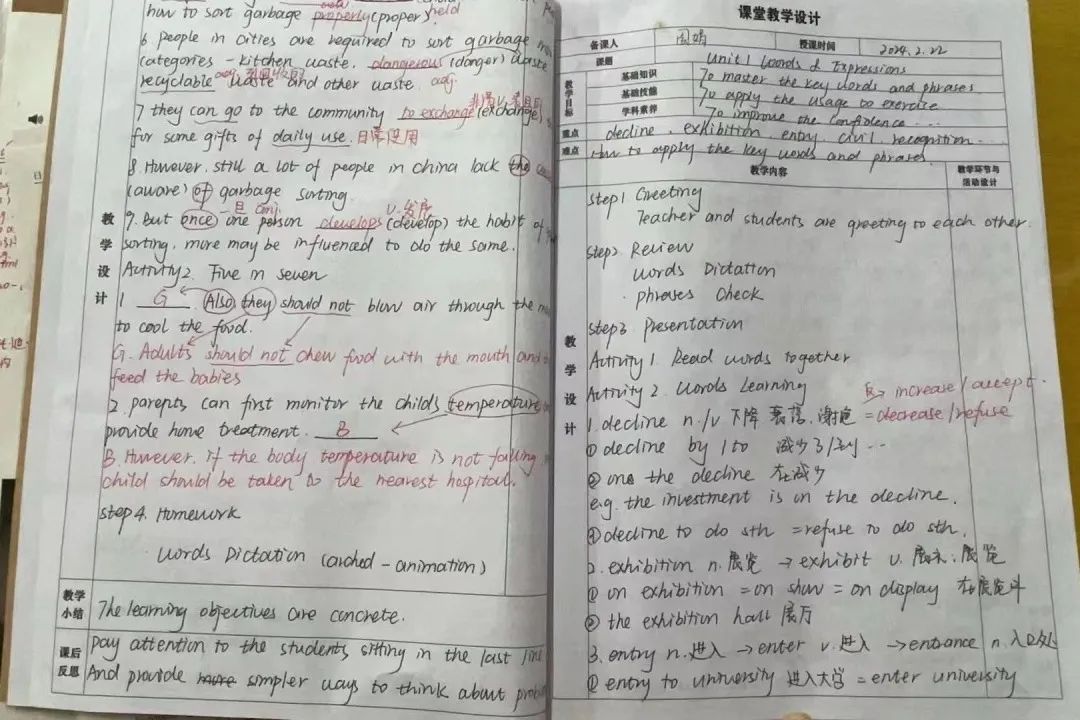 how to sort garbage properly (proper). held
6 people in cities are required to sort garbage
categories - kitchen waste, dangerous (danger) waste
recyclable waste and other waste. adj.
7 they can go to the community to exchange (exchange)
for some gifts of daily use. 日常使用
8. However, still a lot of people in china lack the
(aware) of garbage sorting.
一旦 conj. v. 发展
9. But once one person develops (develop) the habit of
sorting, more may be influenced to do the same.
Activity2. Five in seven
1 G. Also, they should not blow air through the
to cool the food.
G. Adults should not chew food with the mouth and
feed the babies
2. parents can first monitor the child's temperature
provide home treatment. B
B. However, if the body temperature is not falling,
child should be taken to the nearest hospital.
step4. Homework
words Dictation (arched - animation)
教学设计
教学小结
The learning objectives are concrete.
课后反思
pay attention to the students sitting in the last line
And provide simpler ways to think about
课堂教学设计
备课人 授课时间 2024.2.22
课题 Unit1 Words & Expressions
教学目标
基础知识 To master the key words and phrases
基础技能 To apply the usage to exercise
学科素养 To improve the confidence ...
重点 decline, exhibition, entry, civil, recognition...
难点 How to apply the key words and phrases
教学内容 教学环节与活动设计
教学设计
step1 Greeting
Teacher and students are greeting to each other.
step2. Review
words Dictation
phrases Check
step3. Presentation
Activity 1. Read words together
Activity 2. Words Learning
increase / accept.
1. decline n./v 下降 衰落. 谢绝 = decrease / refuse
① decline by / to 减少了/到 ...
② on the decline 在减少
e.g. the investment is on the decline.
③ decline to do sth = refuse to do sth.
2. exhibition n. 展览 → exhibit v. 展示. 展览
① on exhibition = on show = on display 在展览中
② the exhibition hall 展厅
3. entry n. 进入 → enter v. 进入 → entrance n. 入口处
① entry to university 进入大学 = enter university